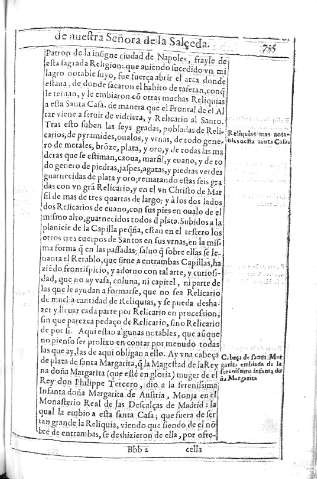 de nuestra Señora de la Salçeda. 735
Patron de la insigne ciudad de Napoles, frayle de
esta sagrada Religion: que auiendo sucedido vn mi
lagro notable suyo, fue fuerça abrir el arca donde
estaua, de donde sacaron el habito de tafetan, con que
le tenian, y le embiaron con otras muchas Reliquias
a esta Santa Casa. de manera que el Frontal de el Al
tar viene a seruir de vidriera, y Relicario al Santo.
Tras esto suben las seys gradas, pobladas de Reli-
carios, de pyramides, oualos, y vrnas, de todo gene-
ro de metales, brõze, plata, y oro, y de todas las ma
deras que se estiman, caoua, marfil, y euano, y de to
do genero de piedras, jaspes, agatas, y piedras verdes
guarnecidas de plata y oro, rematando estas seis gra
das con vn grã Relicario, y en el vn Christo de Mar
fil de mas de tres quartas de largo; y à los dos lados
dos Relicarios de euano, con sus pies en oualo de el
mismo alto, guarnecidos todos de plata. Subidos a la
planicie de la Capilla peq̃ña, estan en el testero los
otros tres cuerpos de Santos en sus vrnas, en la mis-
ma forma q̃ en las passadas, saluo q̃ sobre ellas se le-
uanta el Retablo, que sirue a entrambas Capillas, ha
ziẽdo frontispicio, y adorno con tal arte, y curiosi-
dad, que no ay vasa, coluna, ni capitel, ni parte de
las que le ayudan a formarse, que no sea Relicario
de mucha cantidad de Reliquias, y se pueda desha-
zer y lleuar cada parte por Relicario en procession,
sin que parezca pedaço de Relicario, sino Relicario
de por si. Aqui estan algunas notables, que aunque
no pienso ser prolixo en contar por menudo todas
las que ay, las de aqui obligan a ello. Ay vna cabeça
de plata de santa Margarita, q̃ la Magestad de la Rey
na doña Margarita (que esté en gloria) muger de el
Rey don Philippe Tercero, dio a la serenissima
Infanta doña Margarita de Austria, Monja en el
Monasterio Real de las Descalças de Madrid: la
qual la embio a esta santa Casa; que fuera de ser
tan grande la Reliquia, viendo que siendo de el nõ-
bre de entrambas, se deshazieron de ella, por ofre-
Bbb 2 cella
Reliquias mas nota-
bles de esta santa Casa
Cabeça de santa Mar
garita embiada de la
serenissima infanta do
ña Margarita